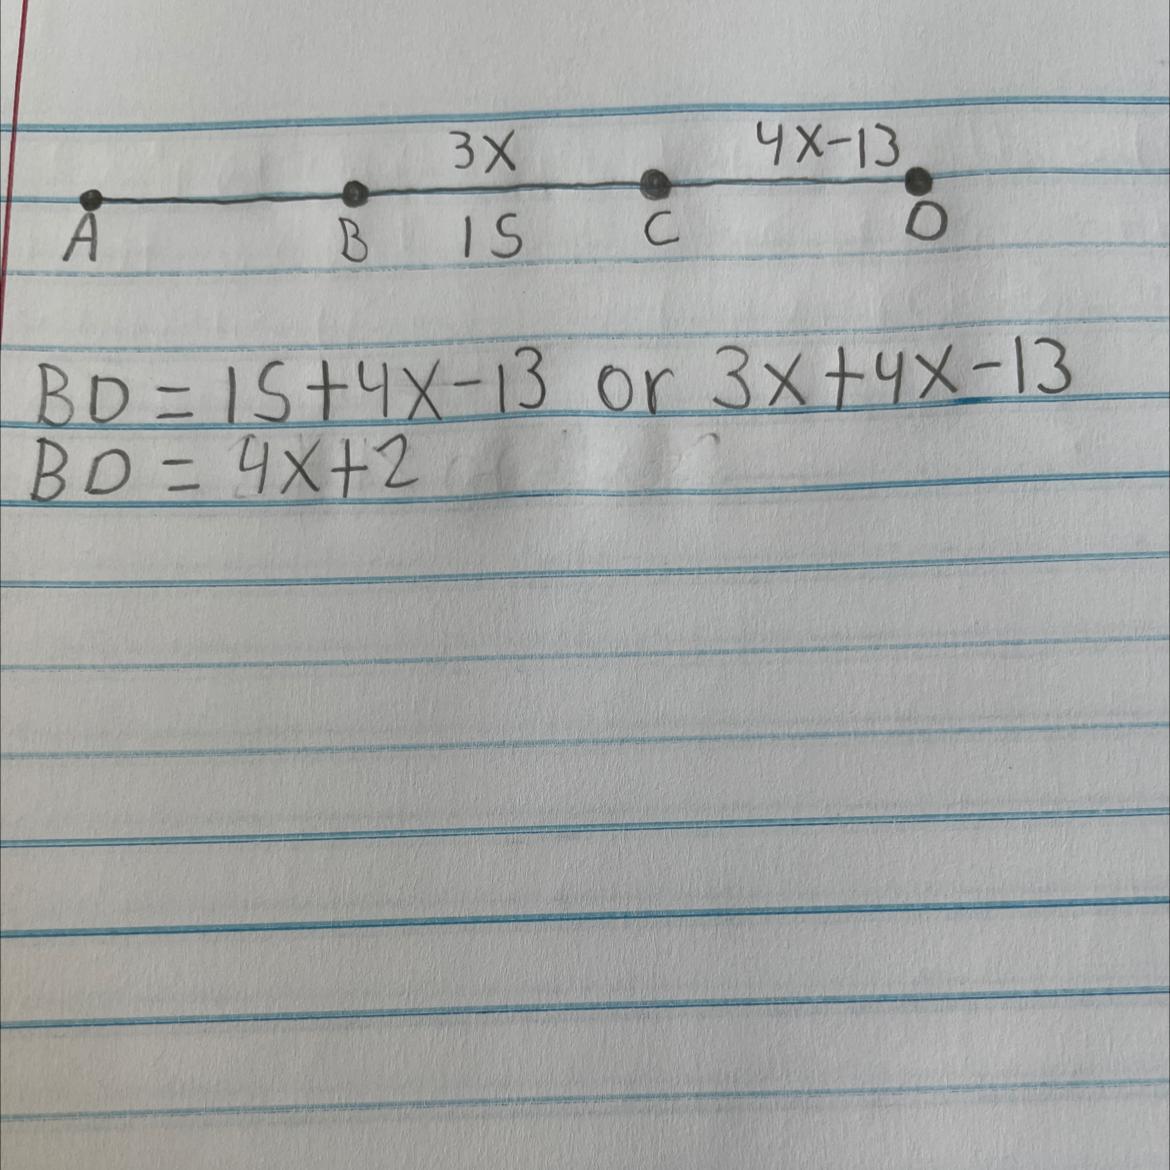 3X 4X-13
A B 15 C D
BD = 15+4X-13 or 3X+4X-13
BD = 4X+2